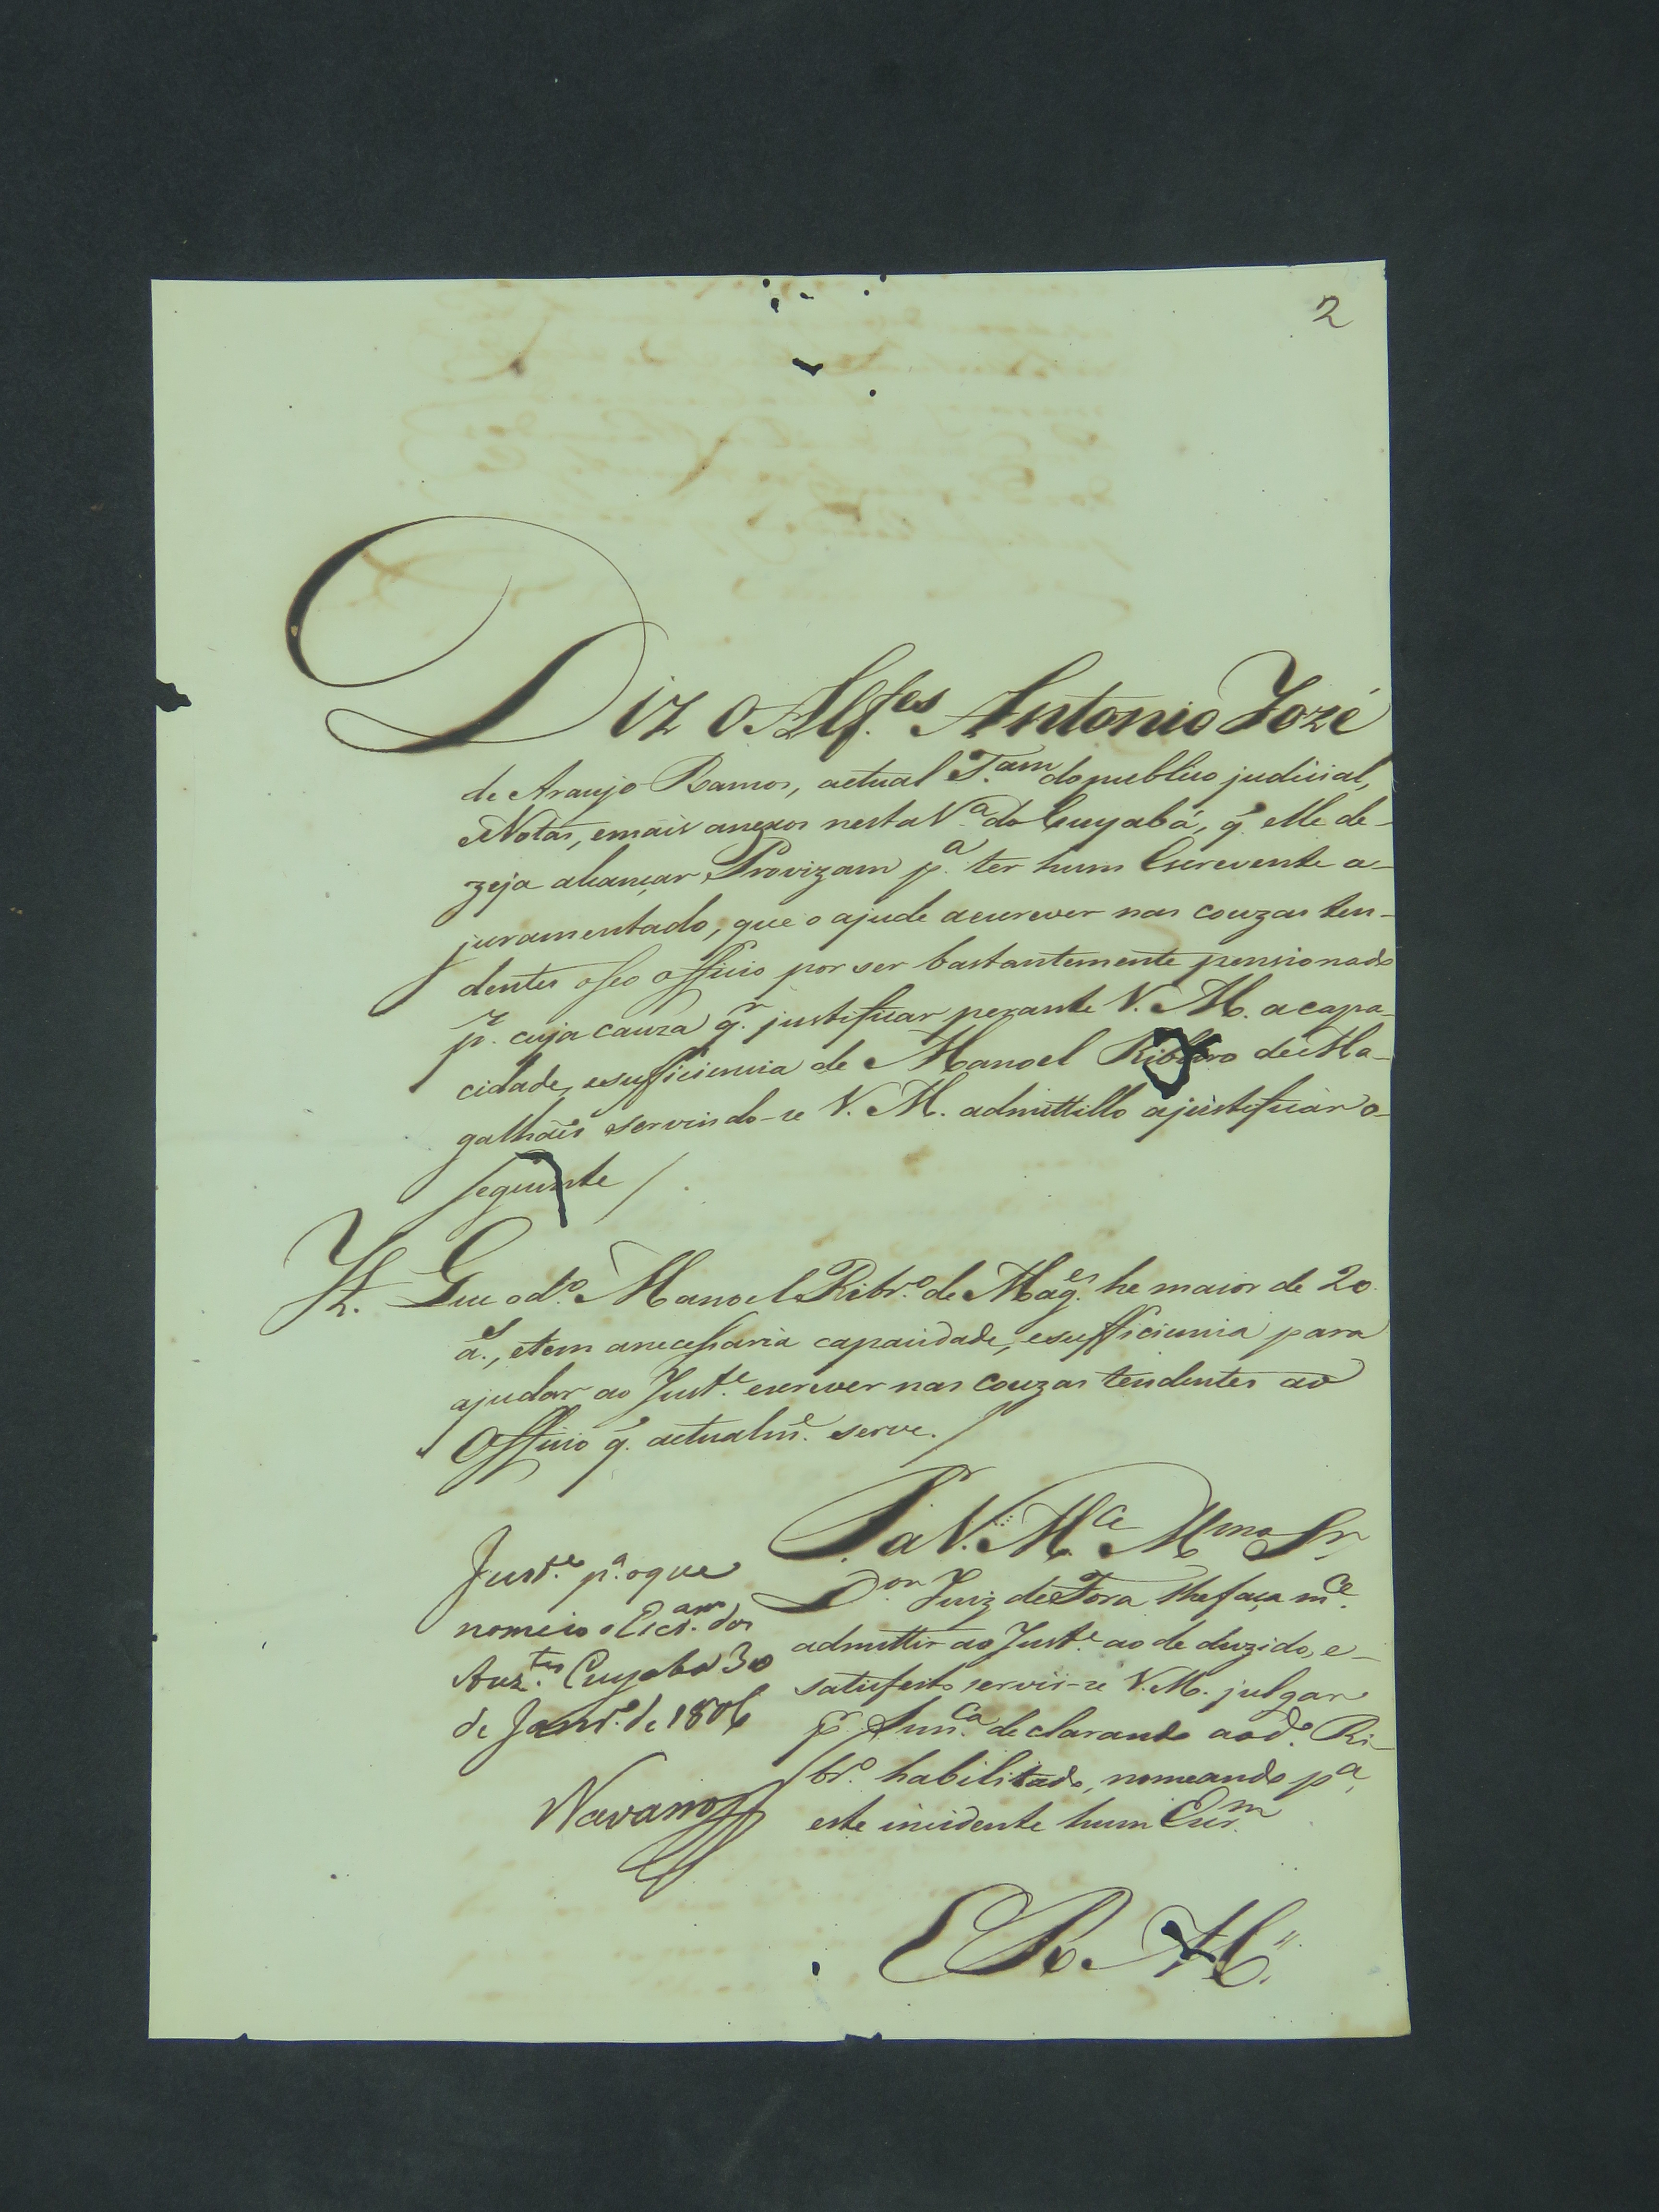 2
Diz o Alf.es Antonio Jozé
de Araujo Ramos, actual T.am do publico judicial,
e Notas, emais anexos nesta V.a do Cuyabá, q̃. elle de-
zeja alcançar Provizam p.a ter hum Escrevente a-
juramentado, que o ajude aescrever nas couzas ten-
dentes oseo officio por ser bastantemente pensionado
p.r cuja cauza q.r justificar perante V. M. acapa-
cidade, esufficiencia de Manoel Ribeiro de Ma-
galhães servindo-se V. M. admittillo ajustificar o-
seguinte /.
It. Que od.o Manoel Ribr.o de Mag.es he maior de 20
a.s, etem anecessaria capacidade, esufficiencia para
ajudar ao Just.e escrever nas couzas tendentes ao
Officio q̃. actualm.e serve. /
P. a V. M.ce M.mo Sr.
D.or Juiz de Fora lhe faça m.ce
admittir ao Just.e ao deduzido, e-
satisfeito servir-se V. M. julgar
p.r Sen.ca declarando aod.o Ri-
br.o habilitado, nomeando p.a
este incidente hum Escr.m
E R. M.ce
Just.e p.a oque
nomeio o Escr.am dos
Auz.tes Cuyaba 30
de Janr.o de 1806
Navarro